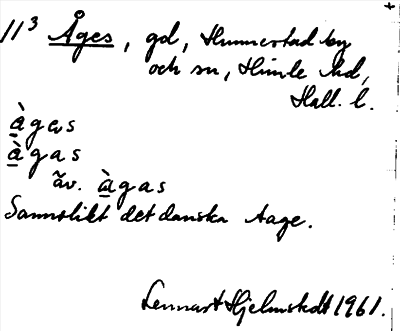 11³ Åges, gd, Hunnestad by
och sn, Himle hd,
Hall. l.
àgɐs
àgas
äv. àgas
Sannolikt det danska Aage.
Lennart Hjelmstedt 1961.